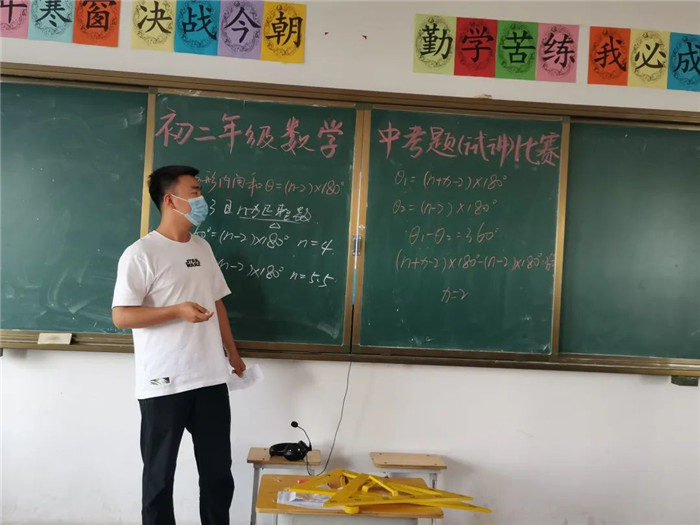 寒窗 决战今朝
勤学苦练 我必成
初二年级数学
中考题(试讲)比赛
形内角和θ=(n-2)×180°
且n为正整数
60°=(n-2)×180° n=4
n-2)×180° n=5.5
θ₁=(n+x-2)×180°
θ₂=(n-2)×180°
θ₁-θ₂=360°
(n+x-2)×180°-(n-2)×180°=
x=2
STAR
WARS